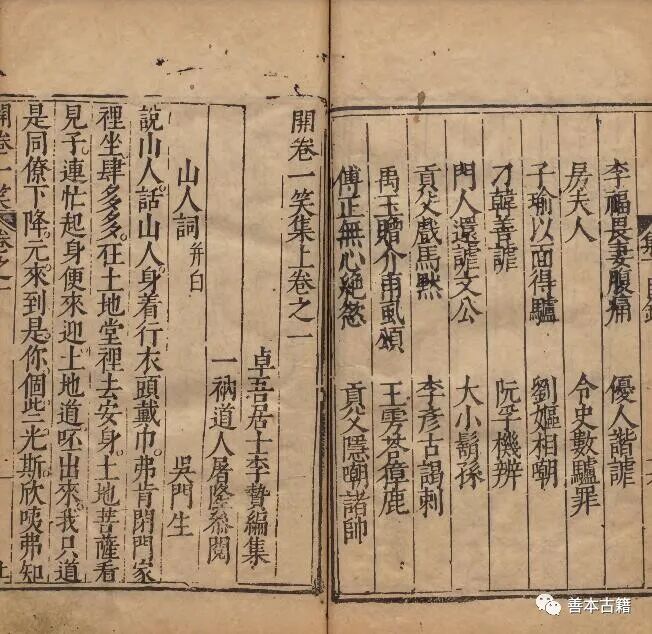 集 目錄
李福畏妻腹痛 優人諧謔
房夫人 令史數驢罪
子瑜以面得驢 劉嫗相嘲
才韓善謔 阮孚機辨
門人還謔文公 大小鬍孫
貢父戲馬默 李彥古謁刺
禹玉贈介甫虱頌 王雱答獐鹿
傅正無心絕慾 貢父隱嘲諸帥
開卷一笑集上卷之一
卓吾居士李贄編集
一衲道人屠隆參閱
山人詞 并白 吳門生
說山人。話山人。身着行衣頭戴巾。弗肯閉門家
裡坐。肆多多。在土地堂裡去安身。土地菩薩看
見子。連忙起身便來迎。土地道呸出來。我只道
是同僚下降。元來到是。你個些二光斯欣咦弗知
開卷一笑 卷之一
善本古籍